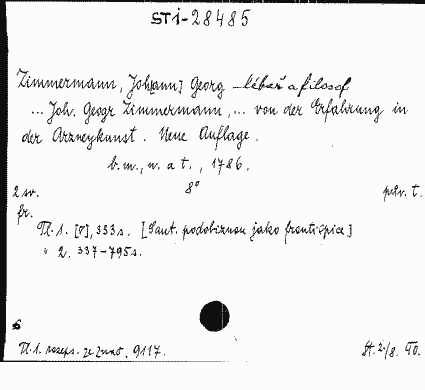 ST i-28485
Zimmermann, Joh[ann] Georg - lékař a filosof
... Joh. Georg Zimmermann, ... von der Erfahrung in
der Arzneykunst. Neue Auflage.
b. m., n. a t., 1786.
2 sv. 8° pův. t.
fr.
Tl. 1. [8], 333 s. [S aut. podobiznou jako frontispice]
" 2. 337-795 s.
6
Tl. 1. rozeps. ze zničo. 9117.